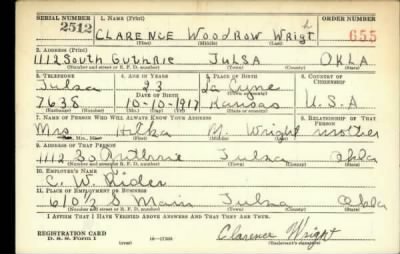 SERIAL NUMBER 1. NAME (Print) ORDER NUMBER
2512 CLARENCE WOODROW Wright 655
(First) (Middle) (Last)
2. ADDRESS (Print)
1112 South Guthrie TULSA OKLA
(Number and street or R. F. D. number) (Town) (County) (State)
3. TELEPHONE 4. AGE IN YEARS 5. PLACE OF BIRTH 6. COUNTRY OF CITIZENSHIP
Tulsa 23
DATE OF BIRTH
7638 10-10-1917 Kansas U.S.A
7. NAME OF PERSON WHO WILL ALWAYS KNOW YOUR ADDRESS 8. RELATIONSHIP OF THAT PERSON
Mrs M. Wright mother
9. ADDRESS OF THAT PERSON
1112 So Guthrie Tulsa Okla
(Number and street or R. F. D. number) (Town) (County) (State)
10. EMPLOYER'S NAME
C. W. Rider
11. PLACE OF EMPLOYMENT OR BUSINESS
610½ S Main Tulsa Okla
(Number and street or R. F. D. number) (Town) (County) (State)
I AFFIRM THAT I HAVE VERIFIED ABOVE ANSWERS AND THAT THEY ARE TRUE.
REGISTRATION CARD
D. S. S. Form 1 (over) Clarence Wright
(Registrant's signature)